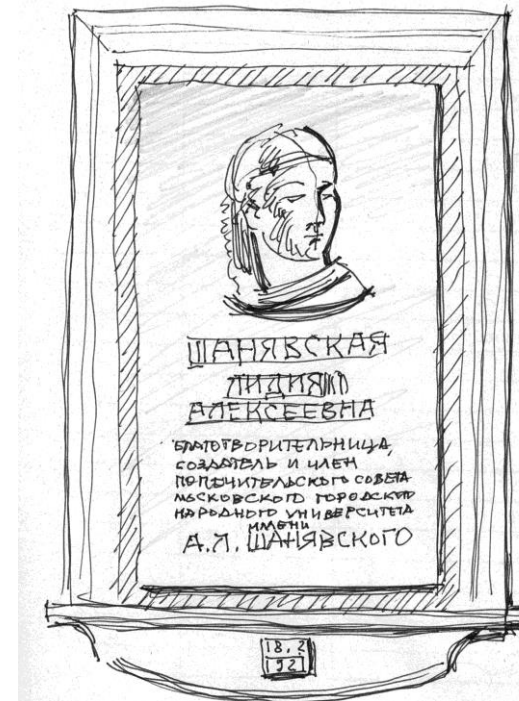 ШАНЯВСКАЯ
ЛИДИЯ
АЛЕКСЕЕВНА
БЛАГОТВОРИТЕЛЬНИЦА,
СОЗДАТЕЛЬ И ЧЛЕН
ПОПЕЧИТЕЛЬСКОГО СОВЕТА
МОСКОВСКОГО ГОРОДСКОГО
НАРОДНОГО УНИВЕРСИТЕТА
ИМЕНИ
А.Л. ШАНЯВСКОГО
18,2
1921